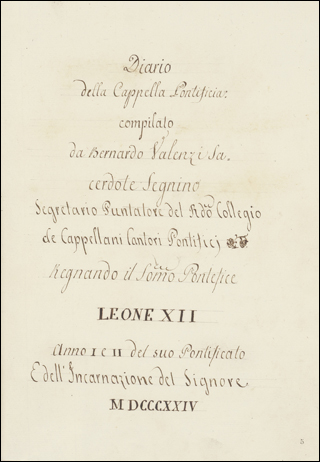 Diario
della Cappella Pontificia:
compilato
da Bernardo Valenzi Sa.
cerdote Segnino
Segretario Puntatore del Rdo Collegio
de Cappellani Cantori Pontificj
Regnando il Sommo Pontefice
LEONE XII
Anno I e II del suo Pontificato
E dell'Incarnazione del Signore
MDCCCXXIV
5